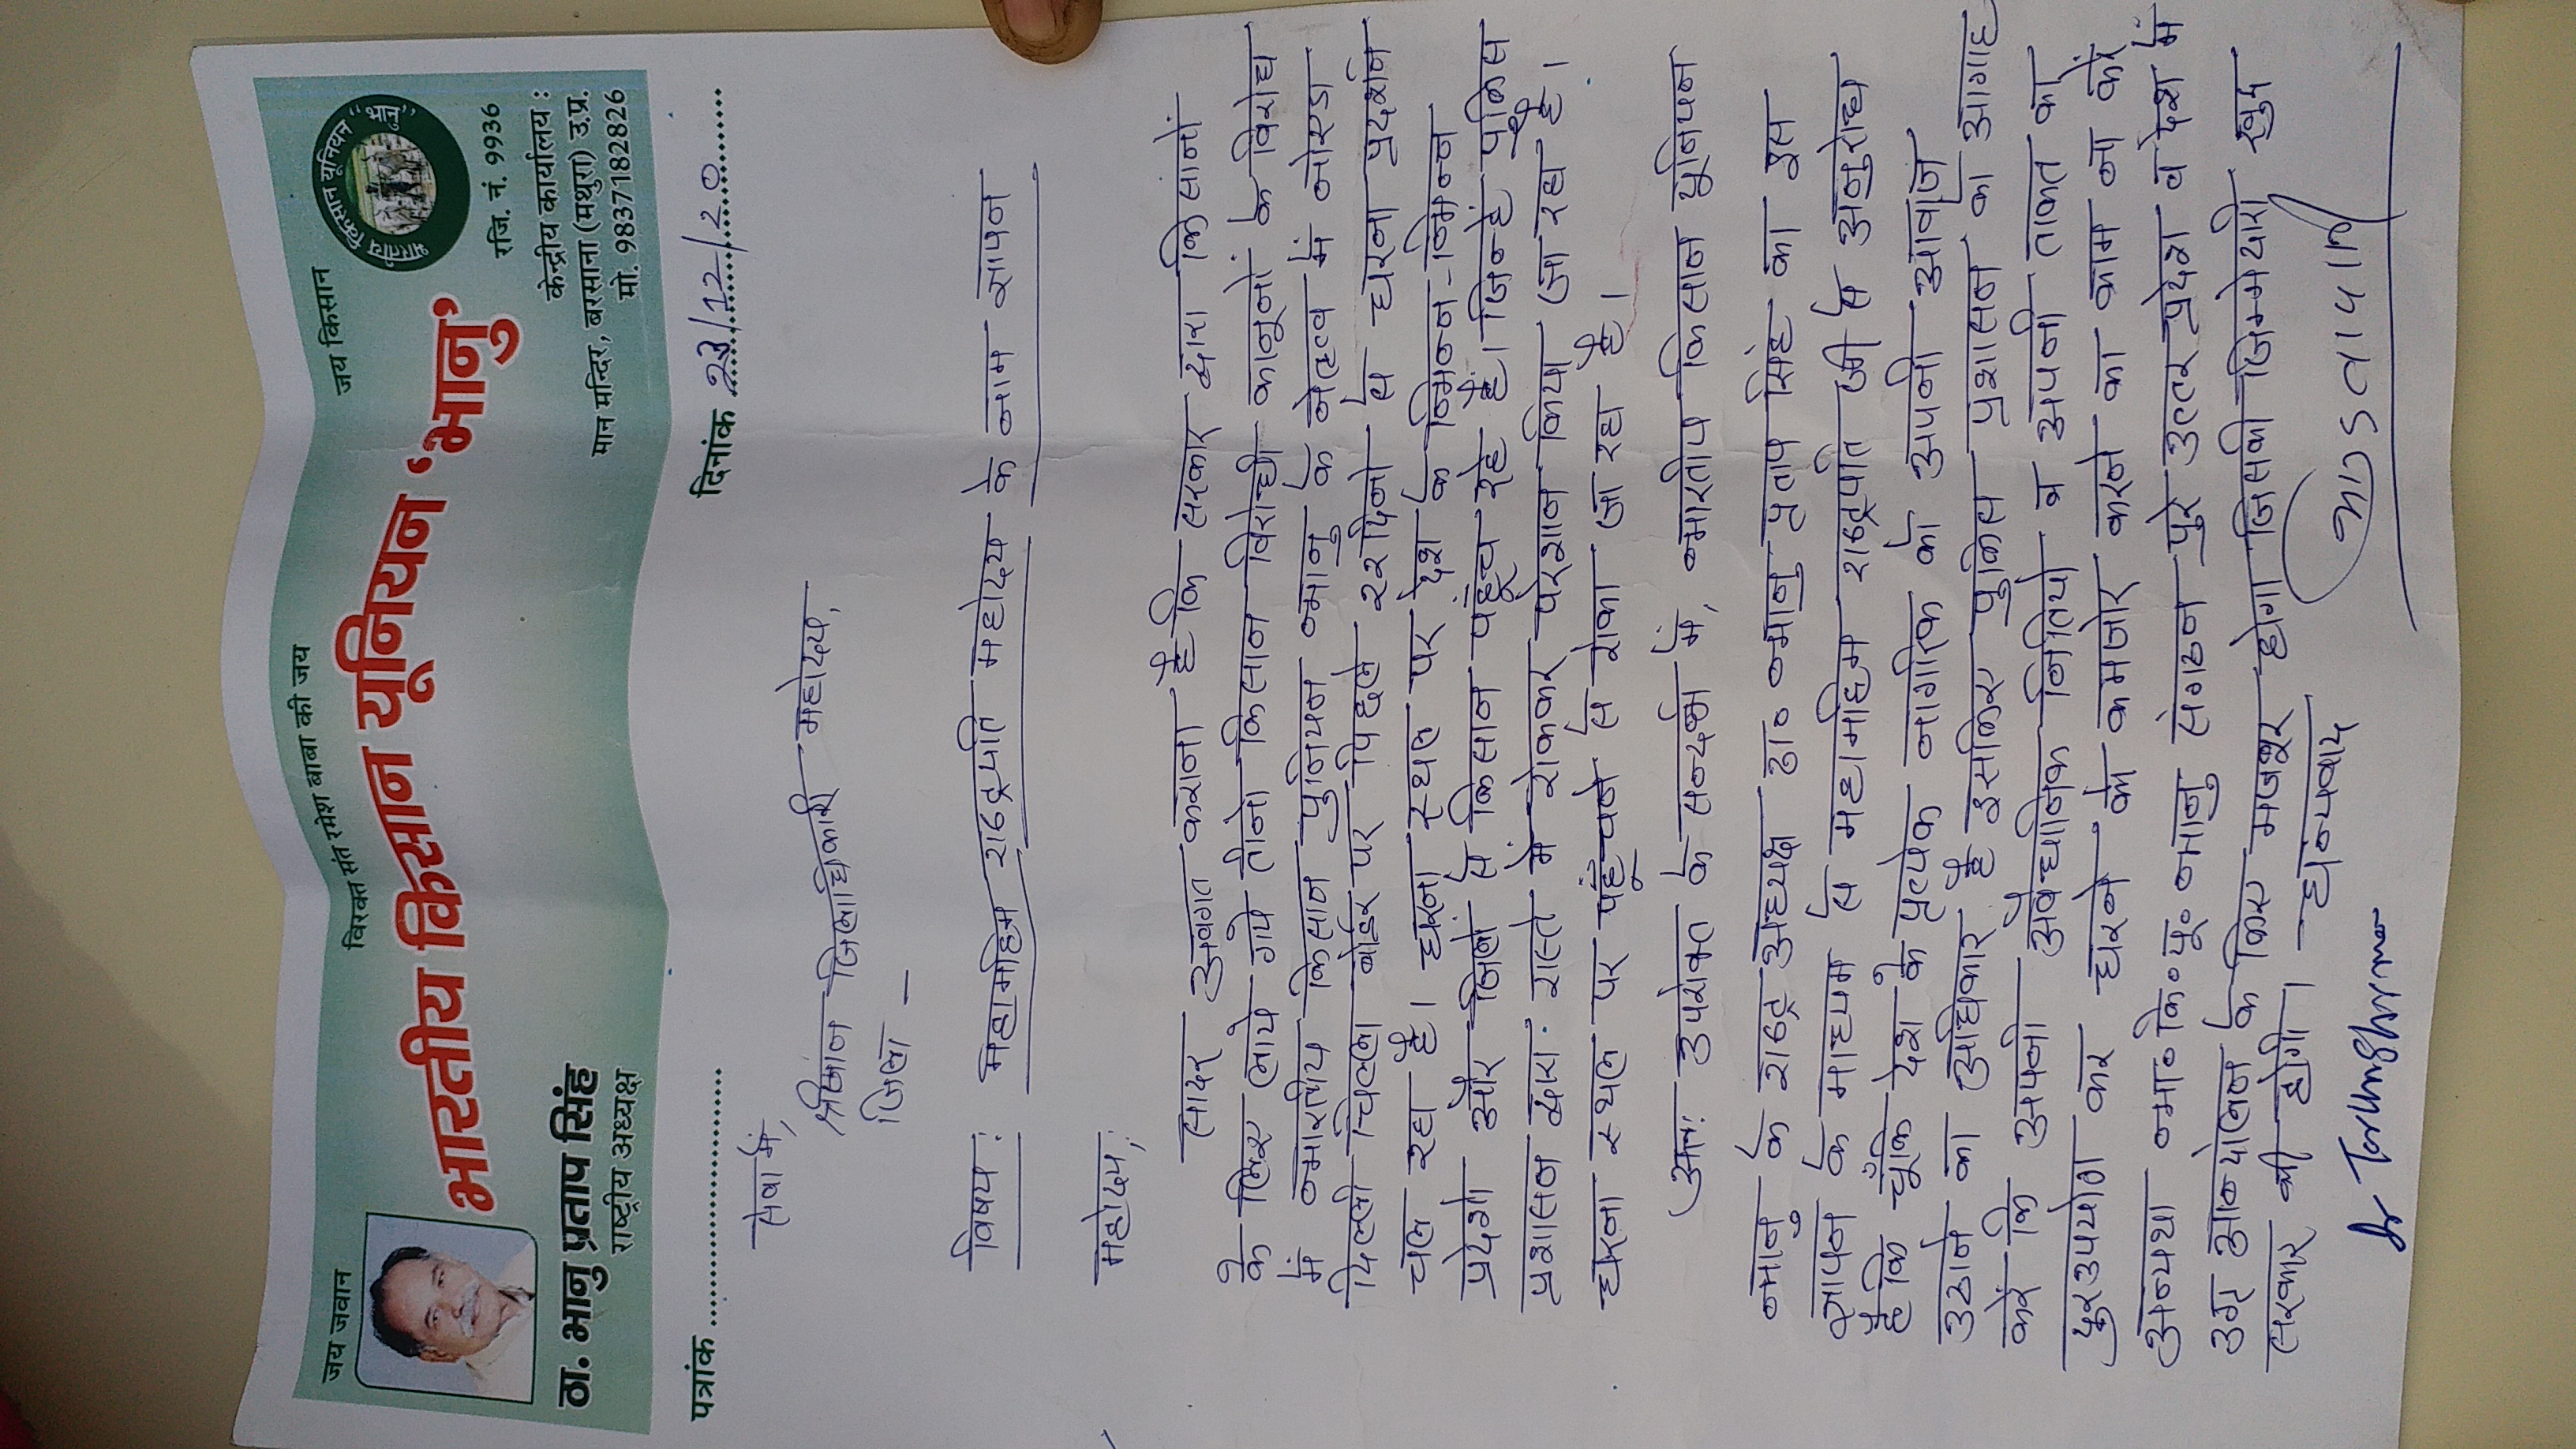 जय जवान
विरक्त संत रमेश बाबा की जय
जय किसान
भारतीय किसान यूनियन ‘भानु’
भारतीय किसान यूनियन "भानु"
ठा. भानु प्रताप सिंह
राष्ट्रीय अध्यक्ष
रजि. नं. 9936
केन्द्रीय कार्यालय :
मान मन्दिर, बरसाना (मथुरा) उ.प्र.
मो. 9837182826
पत्रांक ....................
दिनांक 23/12/20
सेवा में,
श्रीमान जिलाधिकारी महोदय,
जिला -
विषय : महामहिम राष्ट्रपति महोदय के नाम ज्ञापन
महोदय,
सादर अवगत कराना है कि सरकार द्वारा किसानों
के लिए लाये गये तीनो किसान विरोधी कानूनों के विरोध
में भारतीय किसान युनियन भानु के नेतृत्व में नोएडा
दिल्ली चिल्ला बोर्डर पर पिछले २२ दिनो से धरना प्रदर्शन
चल रहा है। धरना स्थल पर देश के भिन्न-भिन्न
प्रदेशो और जिलो से किसान पहूंच रहे हैं। जिन्हें पुलिस
प्रशासन द्वारा रास्ते में रोककर परेशान किया जा रहा है।
धरना स्थल पर पहूंचने से रोका जा रहा है।
अतः उपरोक्त के सन्दर्भ में, भारतीय किसान युनियन
भानु के राष्ट्र अध्यक्ष ठा० भानु प्रताप सिंह का इस
ज्ञापन के माध्यम से महामहिम राष्ट्रपति जी से अनुरोध
है कि चूँकि देश के प्रत्येक नागरिक को अपनी आवाज
उठाने का अधिकार है इसलिए पुलिस प्रशासन को आगाह
करें कि अपनी अवैधानिक नितियो व अपनी ताकत का
दुरउपयोग कर धरने को कमजोर करने का काम ना करें
अन्यथा भा०कि०यू० भानु संगठन पुरे उत्तर प्रदेश व देश में
उग्र आन्दोलन के लिए मजबूर होगा जिसकी जिम्मेयारी खुद
सरकार की होगी। धन्यवाद